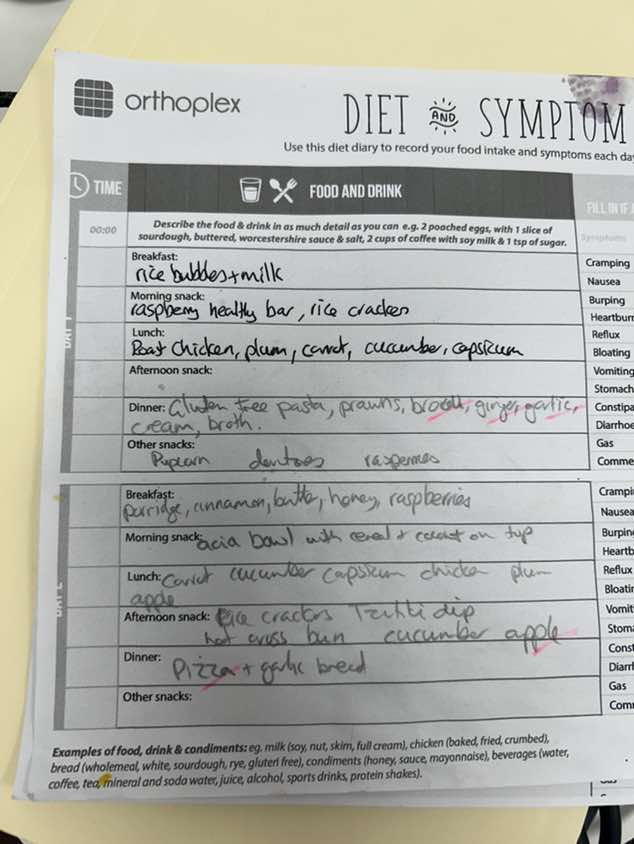 orthoplex
DIET AND SYMPTOM
Use this diet diary to record your food intake and symptoms each da
TIME
FOOD AND DRINK
FILL IN IF A
00:00
Describe the food & drink in as much detail as you can e.g. 2 poached eggs, with 1 slice of
sourdough, buttered, worcestershire sauce & salt, 2 cups of coffee with soy milk & 1 tsp of sugar.
Symptoms
Breakfast:
rice bubbles + milk
Cramping
Nausea
Morning snack:
raspberry healthy bar, rice crackers
Burping
Heartburn
Lunch:
Roast chicken, plum, carrot, cucumber, capsicum
Reflux
Bloating
Afternoon snack:
Vomiting
Stomach
Dinner: Gluten free pasta, prawns, ginger, garlic,
cream, broth.
Constipa
Diarrhoe
Other snacks:
Popcorn raspberries
Gas
Comme
Breakfast:
porridge, cinnamon, butter, honey, raspberries
Crampi
Nausea
Morning snack: acia bowl with on top
Burping
Heartb
Lunch: Carrot cucumber capsicum chicken plum
apple
Reflux
Bloatin
Afternoon snack: Rice crackers dip
hot cross bun cucumber apple
Vomit
Stom
Dinner:
Pizza + garlic bread
Const
Diarrl
Other snacks:
Gas
Com
Examples of food, drink & condiments: eg. milk (soy, nut, skim, full cream), chicken (baked, fried, crumbed),
bread (wholemeal, white, sourdough, rye, gluten free), condiments (honey, sauce, mayonnaise), beverages (water,
coffee, tea, mineral and soda water, juice, alcohol, sports drinks, protein shakes).